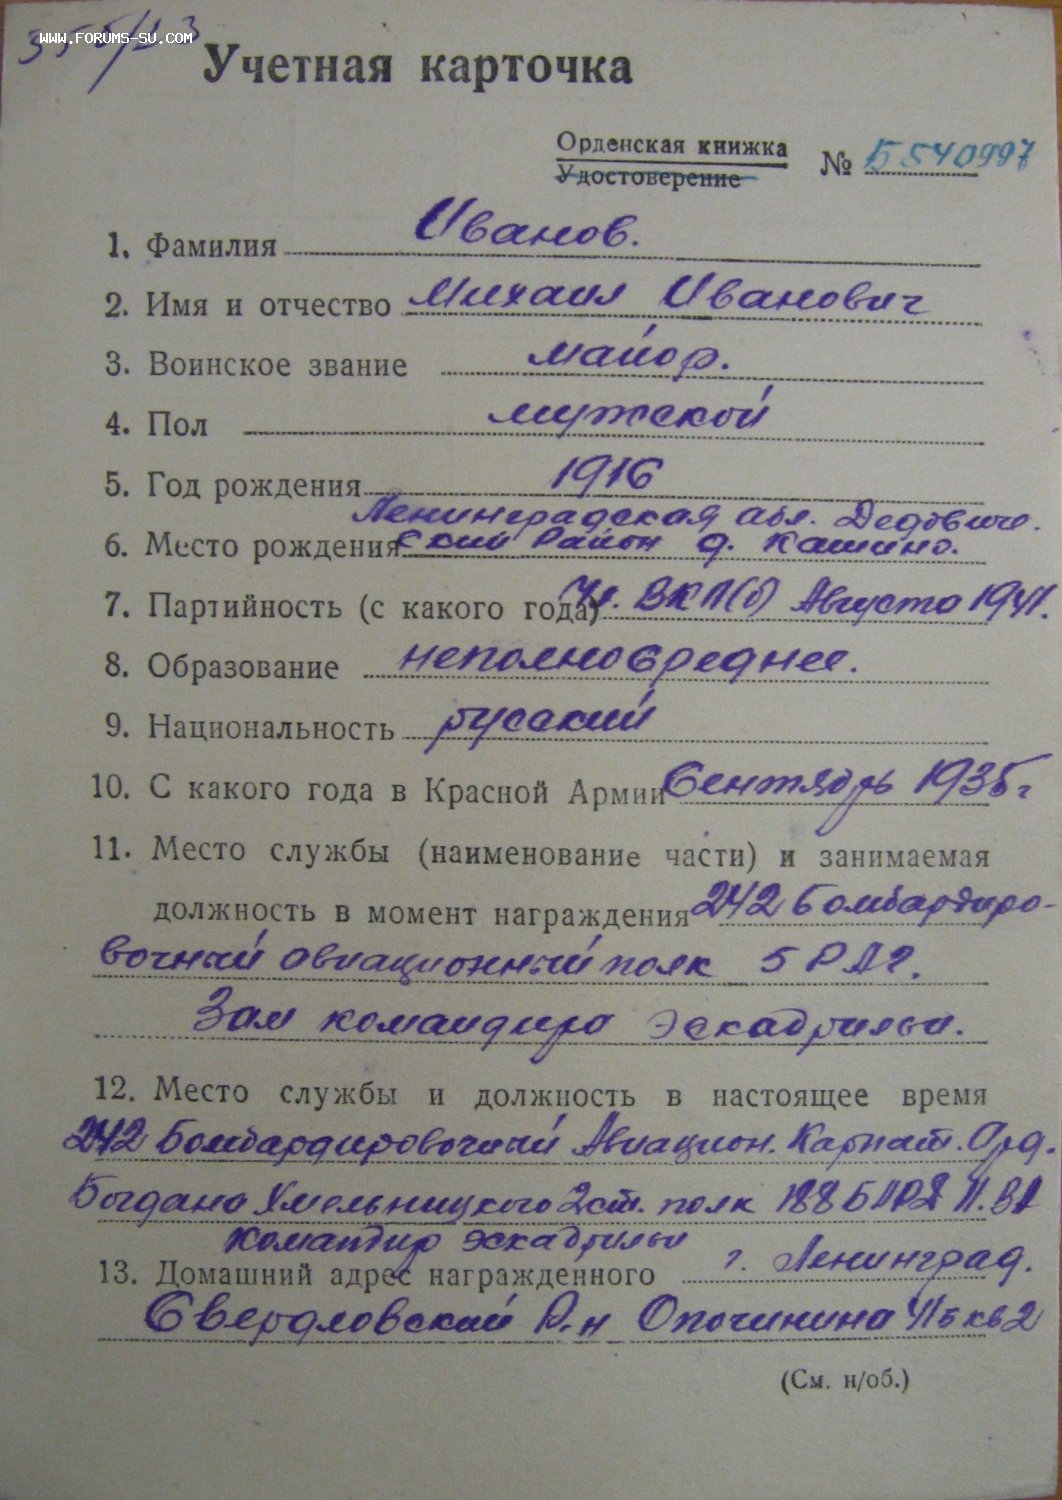 355/23
www.FORUMS-SU.COM
Учетная карточка
Орденская книжка
Удостоверение
№ Б540997
1. Фамилия Иванов.
2. Имя и отчество Михаил Иванович
3. Воинское звание майор.
4. Пол мужской
5. Год рождения 1916
Ленинградская обл. Дедович.
6. Место рождения ский район д. Кашино.
7. Партийность (с какого года) Чл. ВКП(б) Августа 1941.
8. Образование неполносреднее.
9. Национальность русский
10. С какого года в Красной Армии Сентябрь 1935 г
11. Место службы (наименование части) и занимаемая
должность в момент награждения 242 Бомбардиро-
вочный авиационный полк
Зам командира эскадрильи.
12. Место службы и должность в настоящее время
242 Бомбардировочный Авиацион. Карпат. Орд.
Богдана Хмельницкого 2 ст. полк 188
командир эскадрильи
13. Домашний адрес награжденного г. Ленинград.
Свердловский р-н Опочинина кв 2
(См. н/об.)